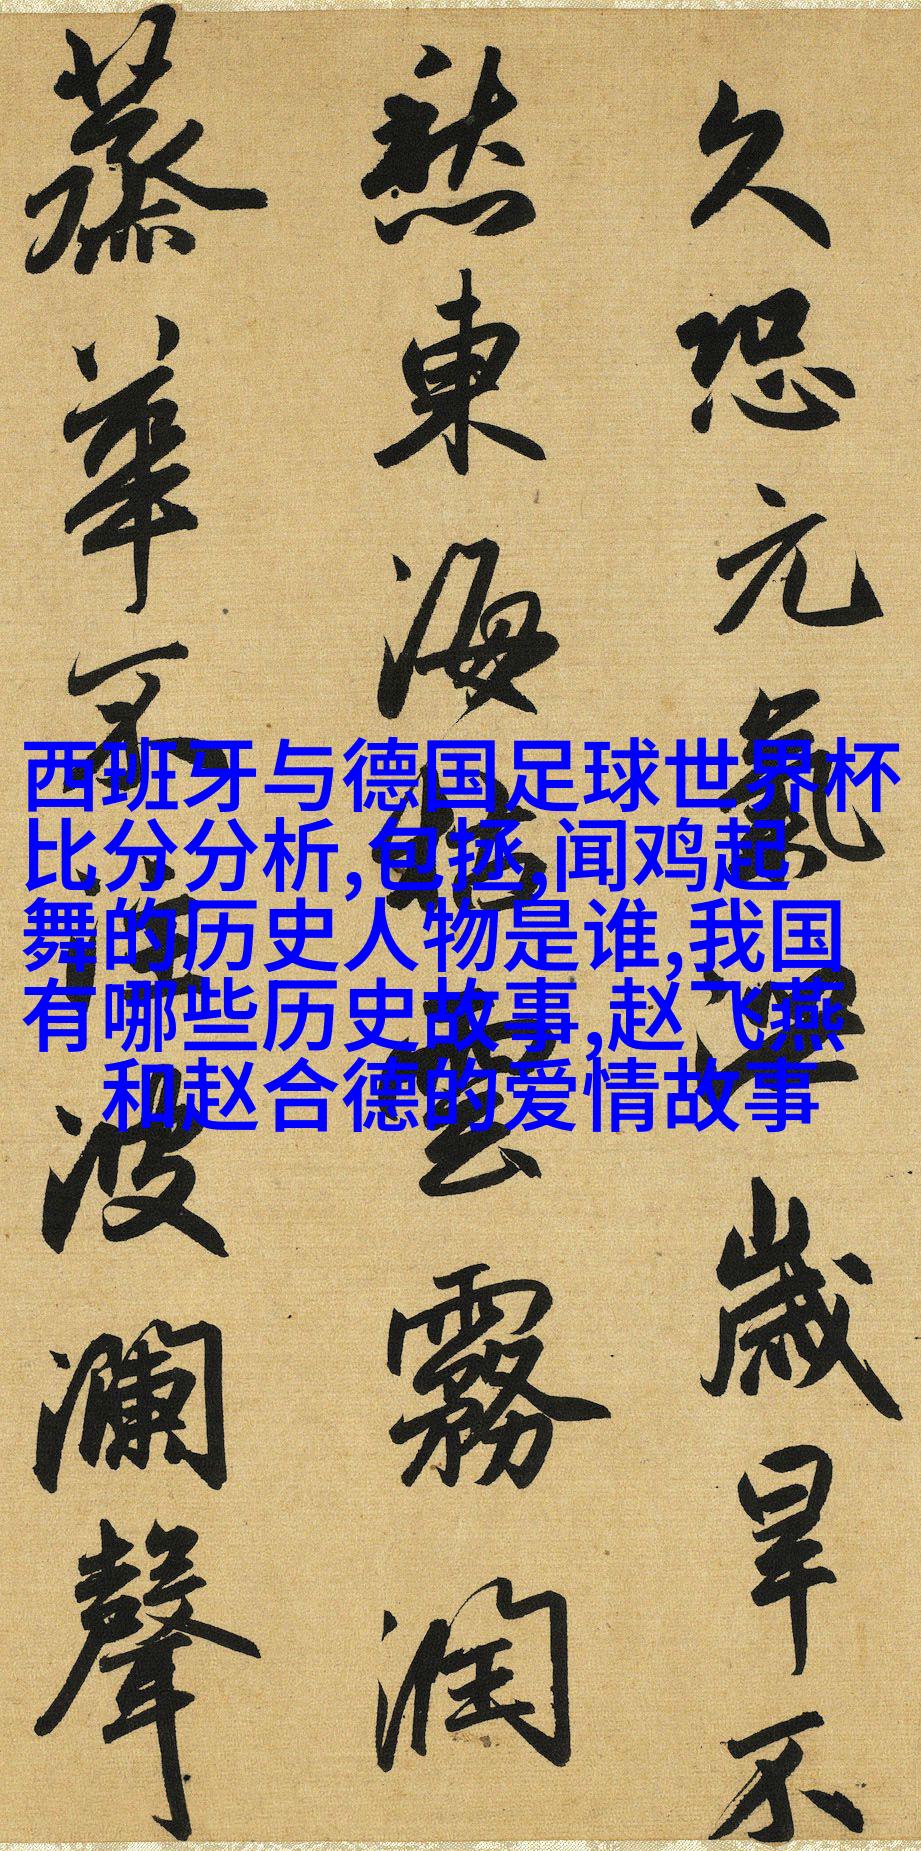 久恐元氣泄歲旱不
愁東海枯雲霧潤
蒸華不注波瀾聲
西班牙与德国足球世界杯
比分分析,包拯,闻鸡起
舞的历史人物是谁,我国
有哪些历史故事,赵飞燕
和赵合德的爱情故事